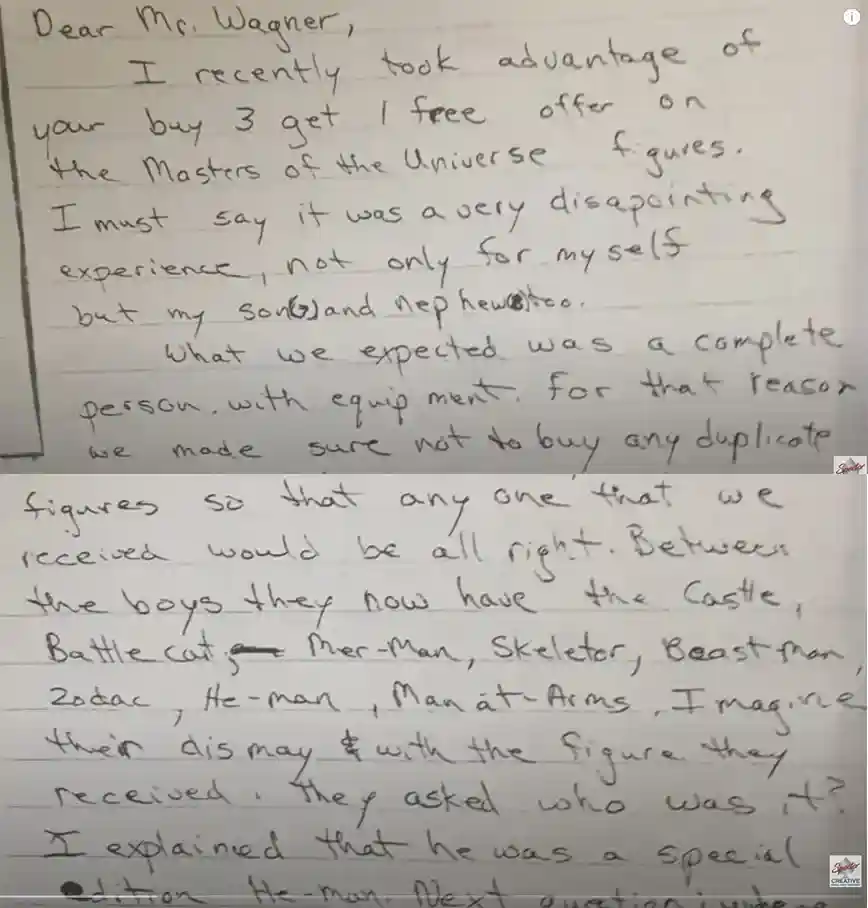 Dear Mr. Wagner,
I recently took advantage of
your buy 3 get 1 free offer on
the Masters of the Universe figures.
I must say it was a very disapointing
experience, not only for myself
but my son(s) and nephew too.
What we expected was a complete
person, with equipment. For that reason
we made sure not to buy any duplicate
figures so that any one that we
received would be all right. Between
the boys they now have the Castle,
Battle cat, Mer-Man, Skeletor, Beast man,
Zodac, He-man, Man at-Arms. Imagine
their dismay & with the figure they
received. They asked who was it?
I explained that he was a special
edition He-man. Next question
CREATIVE